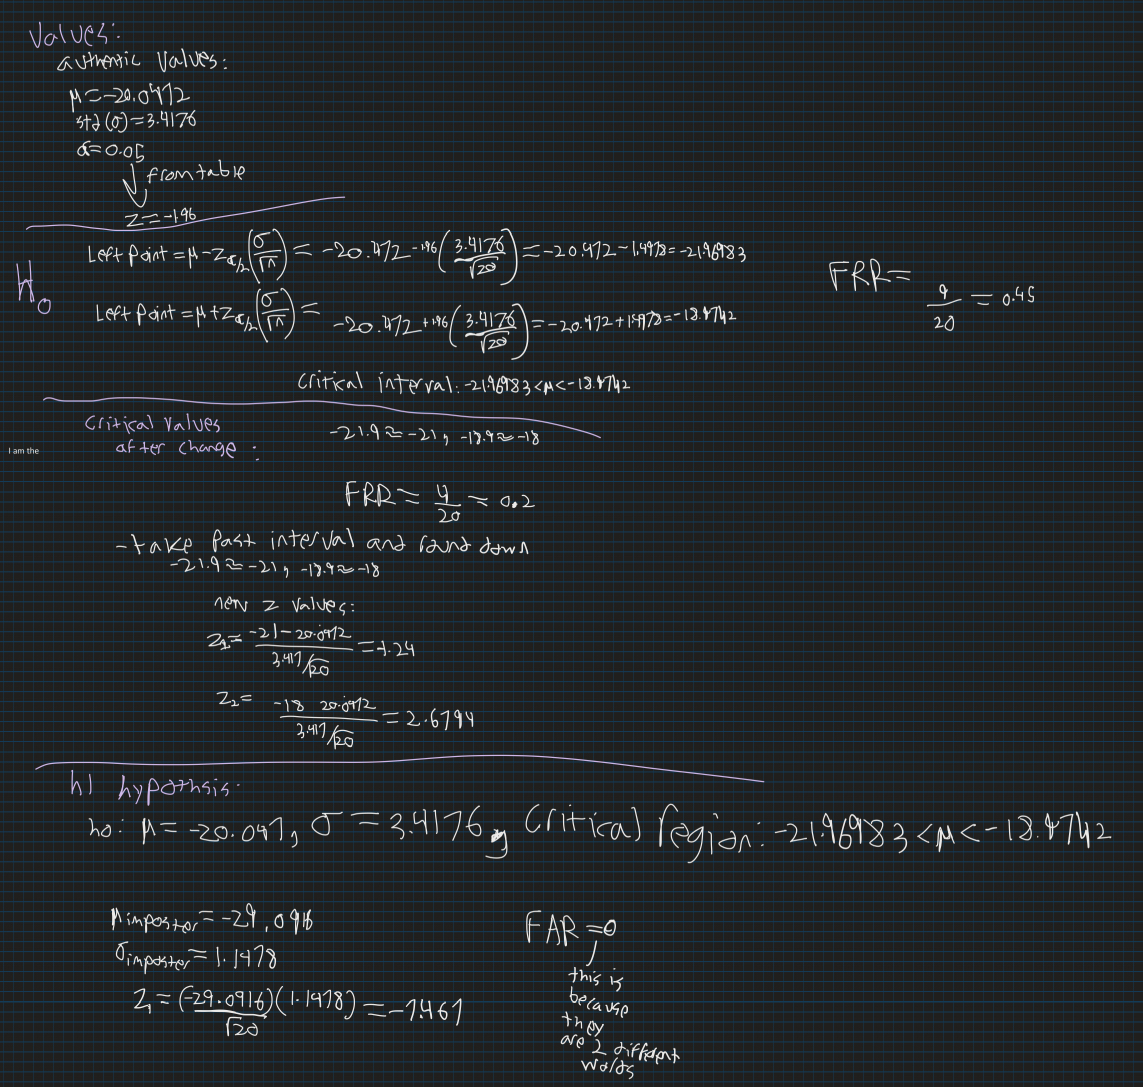 Values:
authentic values:
μ=-20.0472
std(σ)=3.4176
α=0.05
from table
z=-1.96
H₀
Left point = μ - z_α/2 (σ/√n) = -20.472 - 1.96 (3.4176/√20) = -20.472 - 1.4978 = -21.96983
Left point = μ + z_α/2 (σ/√n) = -20.472 + 1.96 (3.4176/√20) = -20.472 + 1.4978 = -18.9742
FRR = 9/20 = 0.45
critical interval: -21.96983 < μ < -18.9742
critical values
after change:
-21.9 ≈ -21, -18.9 ≈ -18
I am the
FRR = 4/20 = 0.2
- take past interval and round down
-21.9 ≈ -21, -18.9 ≈ -18
new z values:
z₁ = -21-20.0472 / 3.417/√20 = -1.24
z₂ = -18 20.0472 / 3.417/√20 = 2.6794
h1 hypothsis:
ho: μ = -20.047, σ = 3.4176, Critical region: -21.96983 < μ < -18.9742
μ imposter = -29.0916
σ imposter = 1.1478
z₁ = (-29.0916)(1.1478) / √20 = -7.467
FAR = 0
this is
because
they
are 2 different
worlds